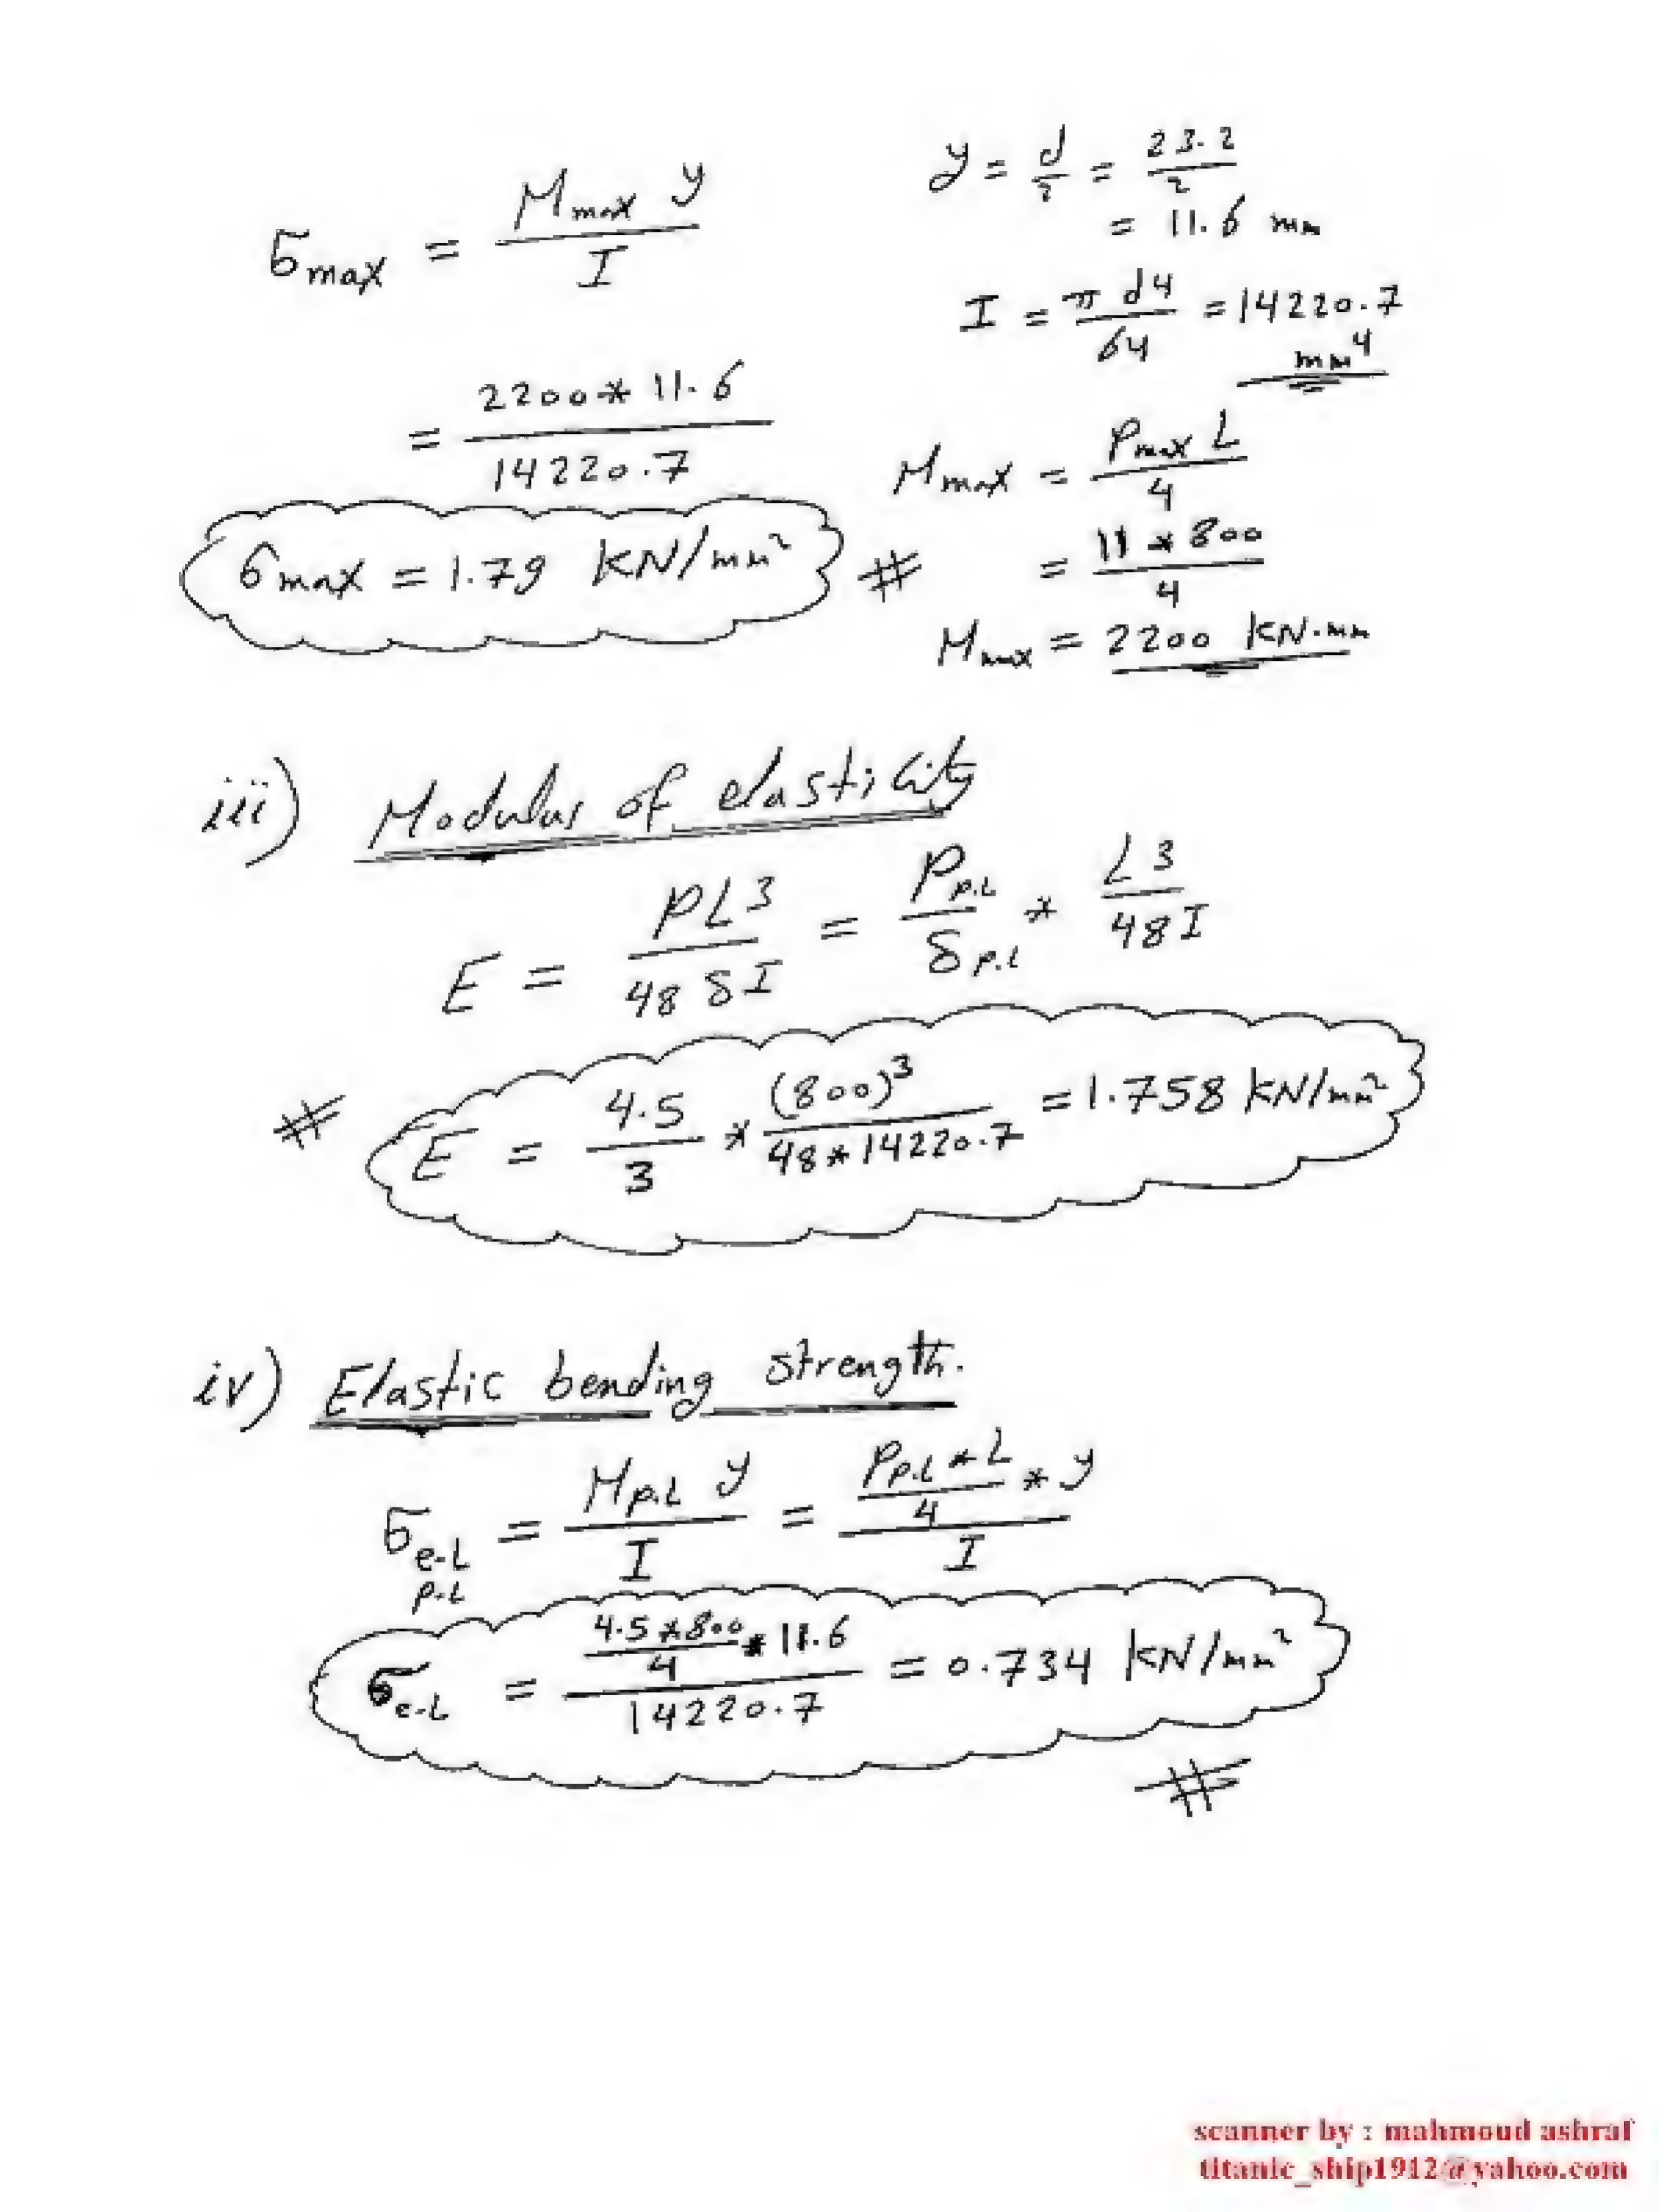 σmax = Mmax y / I
= 2200 * 11.6 / 14220.7
σmax = 1.79 KN/mm² #
y = d/2 = 23.2/2
= 11.6 mm
I = π d4 / 64 = 14220.7
mm⁴
Mmax = Pmax L / 4
= 11 * 800 / 4
Mmax = 2200 KN.mm
iii) Modulus of elasticity
E = PL3 / 48 δI = Pp.L / δp.L * L3 / 48I
# E = 4.5/3 * (800)³ / 48*14220.7 = 1.758 KN/mm²
iv) Elastic bending strength.
σe.L = Mp.L y / I = Pp.L * L / 4 * y / I
p.L
σe.L = 4.5*800 / 4 * 11.6 / 14220.7 = 0.734 KN/mm²
#
scanner by : mahmoud ashraf
titanic_ship1912@yahoo.com